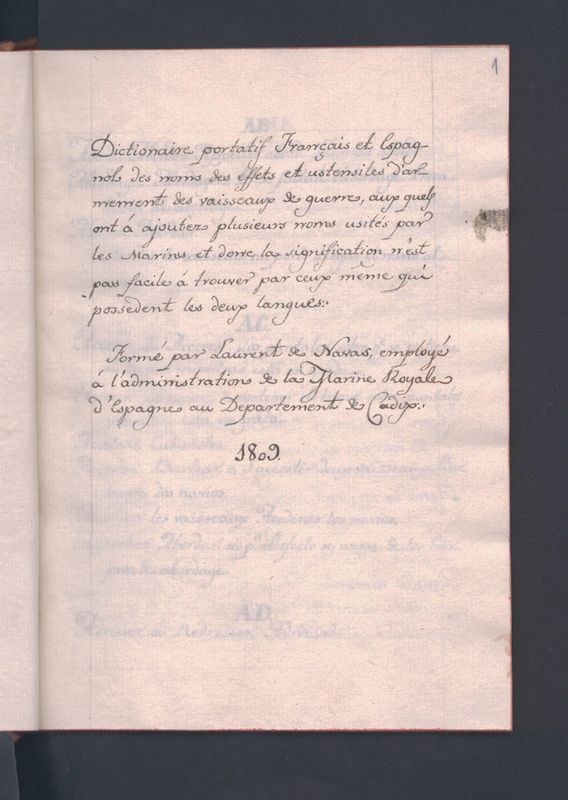 1
Dictionaire portatif Français et Espag-
nol, des noms des effets et ustensiles d'ar-
mement des vaisseaux de guerre, aux quels
ont á ajouter plusieurs noms usités par
les Marins et donc la signification n'est
pas facile á trouver par ceux même qui
possedent les deux langues.:
Formé par Laurent de Navas, employé
á l'administration de la Marine Royale
d'Espagne au Departement de Cadix.:
1809.
AB
AC
les vaisseaux
AD